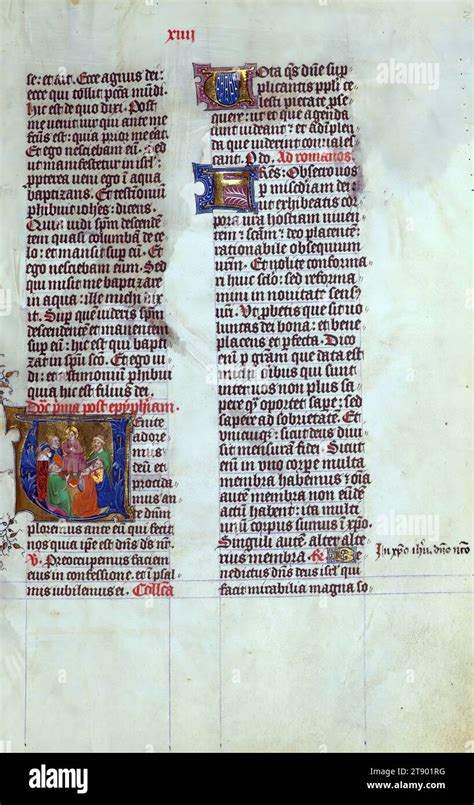 xiiij
se: et ait. Ecce agnus dei:
ecce qui tollit pccā mūdi
hic est de quo dixi. Post
me venit vir qui ante me
fcūs est: quia prior me erat.
Et ego nesciebam eū: sed
ut manifestetur in isrl:
ppterea veni ego ī aqua
baptizans. Et testimoniū
phibuit iohēs: dicens.
Quia vidi spm descenden
tem quasi columbā de ce
lo: et mansit sup eū. Et
ego nesciebam eum. Sed
qui misit me baptizare
in aqua: ille michi dix
it. Sup quē videris spm
descendentē et manentem
sup eū: hic est qui bap
tizat in spū sco. Et ego vi
di: et testimoniū phibui
quia hic est filius dei.
Dōc pma post epyphiam.
Enite
adore
mus
eum et
procida
mus an
te dnm
ploremus ante eū qui fecit
nos quia ipse est dñs ds nr.
V. Preoccupemus faciem
eius in confessione. et ī psal
mis iubilemus ei. Collcā
Vota qs dñe sup
plicantis ppli ce
lesti pietate prose
quere: ut et que agenda
sunt videant: et ad īplen
da que viderint convales
cant. P do. Ad romanos.
Fres: Obsecro vos
p misc̄diam dei:
ut exhibeatis cor
pora vra hostiam viven
tem: scām: deo placentē:
rationabile obsequium
vrm. Et nolite conforma
ri huic sclo: sed reforma
mini in novitate sensus
vri. Ut pbetis que sit vo
luntas dei bona: et bene
placens et pfecta. Dico
enim p grām que data est
michi: omībus qui sunt
inter vos non plus sa
pere q̄ oportet sape: sed
sapere ad sobrietatē. Et
unicuiq̄: sicut deus divi
sit mensurā fidei. Sicut
enī in uno corpe multa
membra habemus: oīa
autē membra non eūdē
actū habent: ita multi
unū corpus sumus ī xpo.
Singuli autē alter alte
rius membra. R. Be
nedictus dñs deus isrl qui
facit mirabilia magna so
in xpō ihū. dño nrō
alamy
Image ID: 2T901RG
www.alamy.com